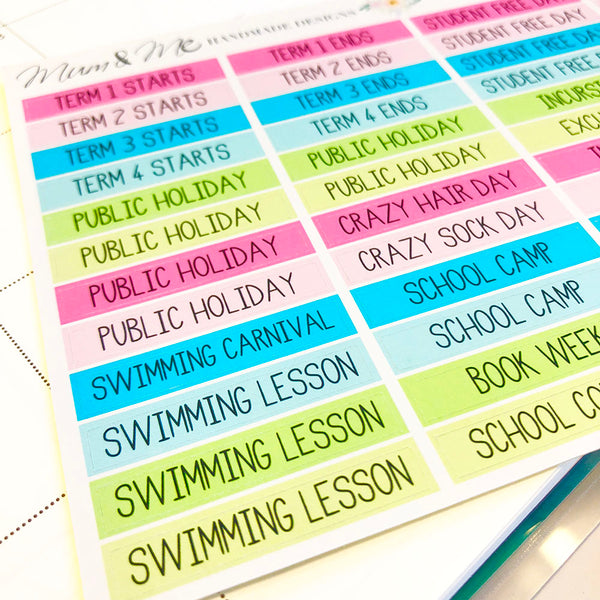 Mum & Me HANDMADE DESIGNS
TERM 1 STARTS
TERM 2 STARTS
TERM 3 STARTS
TERM 4 STARTS
PUBLIC HOLIDAY
PUBLIC HOLIDAY
PUBLIC HOLIDAY
PUBLIC HOLIDAY
SWIMMING CARNIVAL
SWIMMING LESSON
SWIMMING LESSON
SWIMMING LESSON
TERM 1 ENDS
TERM 2 ENDS
TERM 3 ENDS
TERM 4 ENDS
PUBLIC HOLIDAY
PUBLIC HOLIDAY
CRAZY HAIR DAY
CRAZY SOCK DAY
SCHOOL CAMP
SCHOOL CAMP
BOOK WEEK
SCHOOL CO
STUDENT FREE DAY
STUDENT FREE DAY
STUDENT FREE DAY
STUDENT FREE
INCURS
EXCU